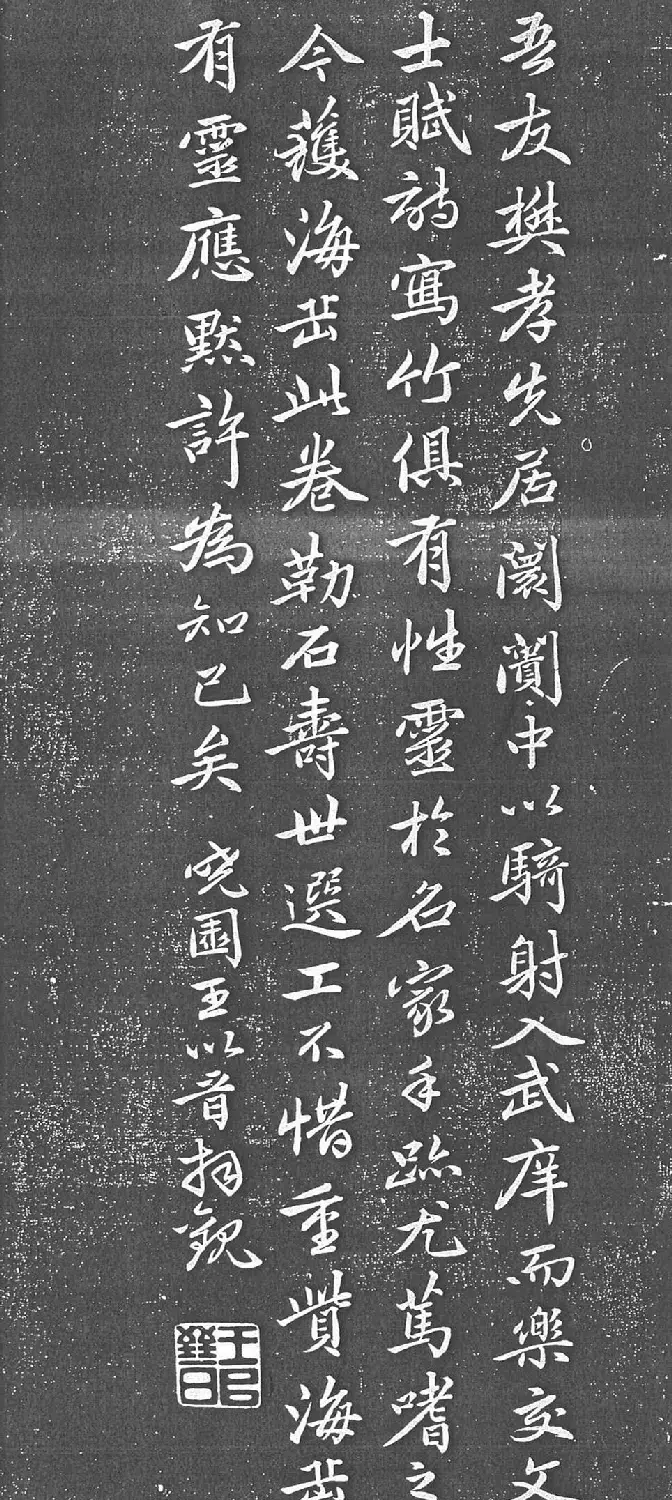 吾友樊孝先居闤闠中以騎射入武庠而樂交文
士賦詩寫竹俱有性靈於名家手跡尤篤嗜之
今獲海岳此卷勒石壽世選工不惜重貲海岳
有靈應默許為知己矣 曉園王以晋拜觀